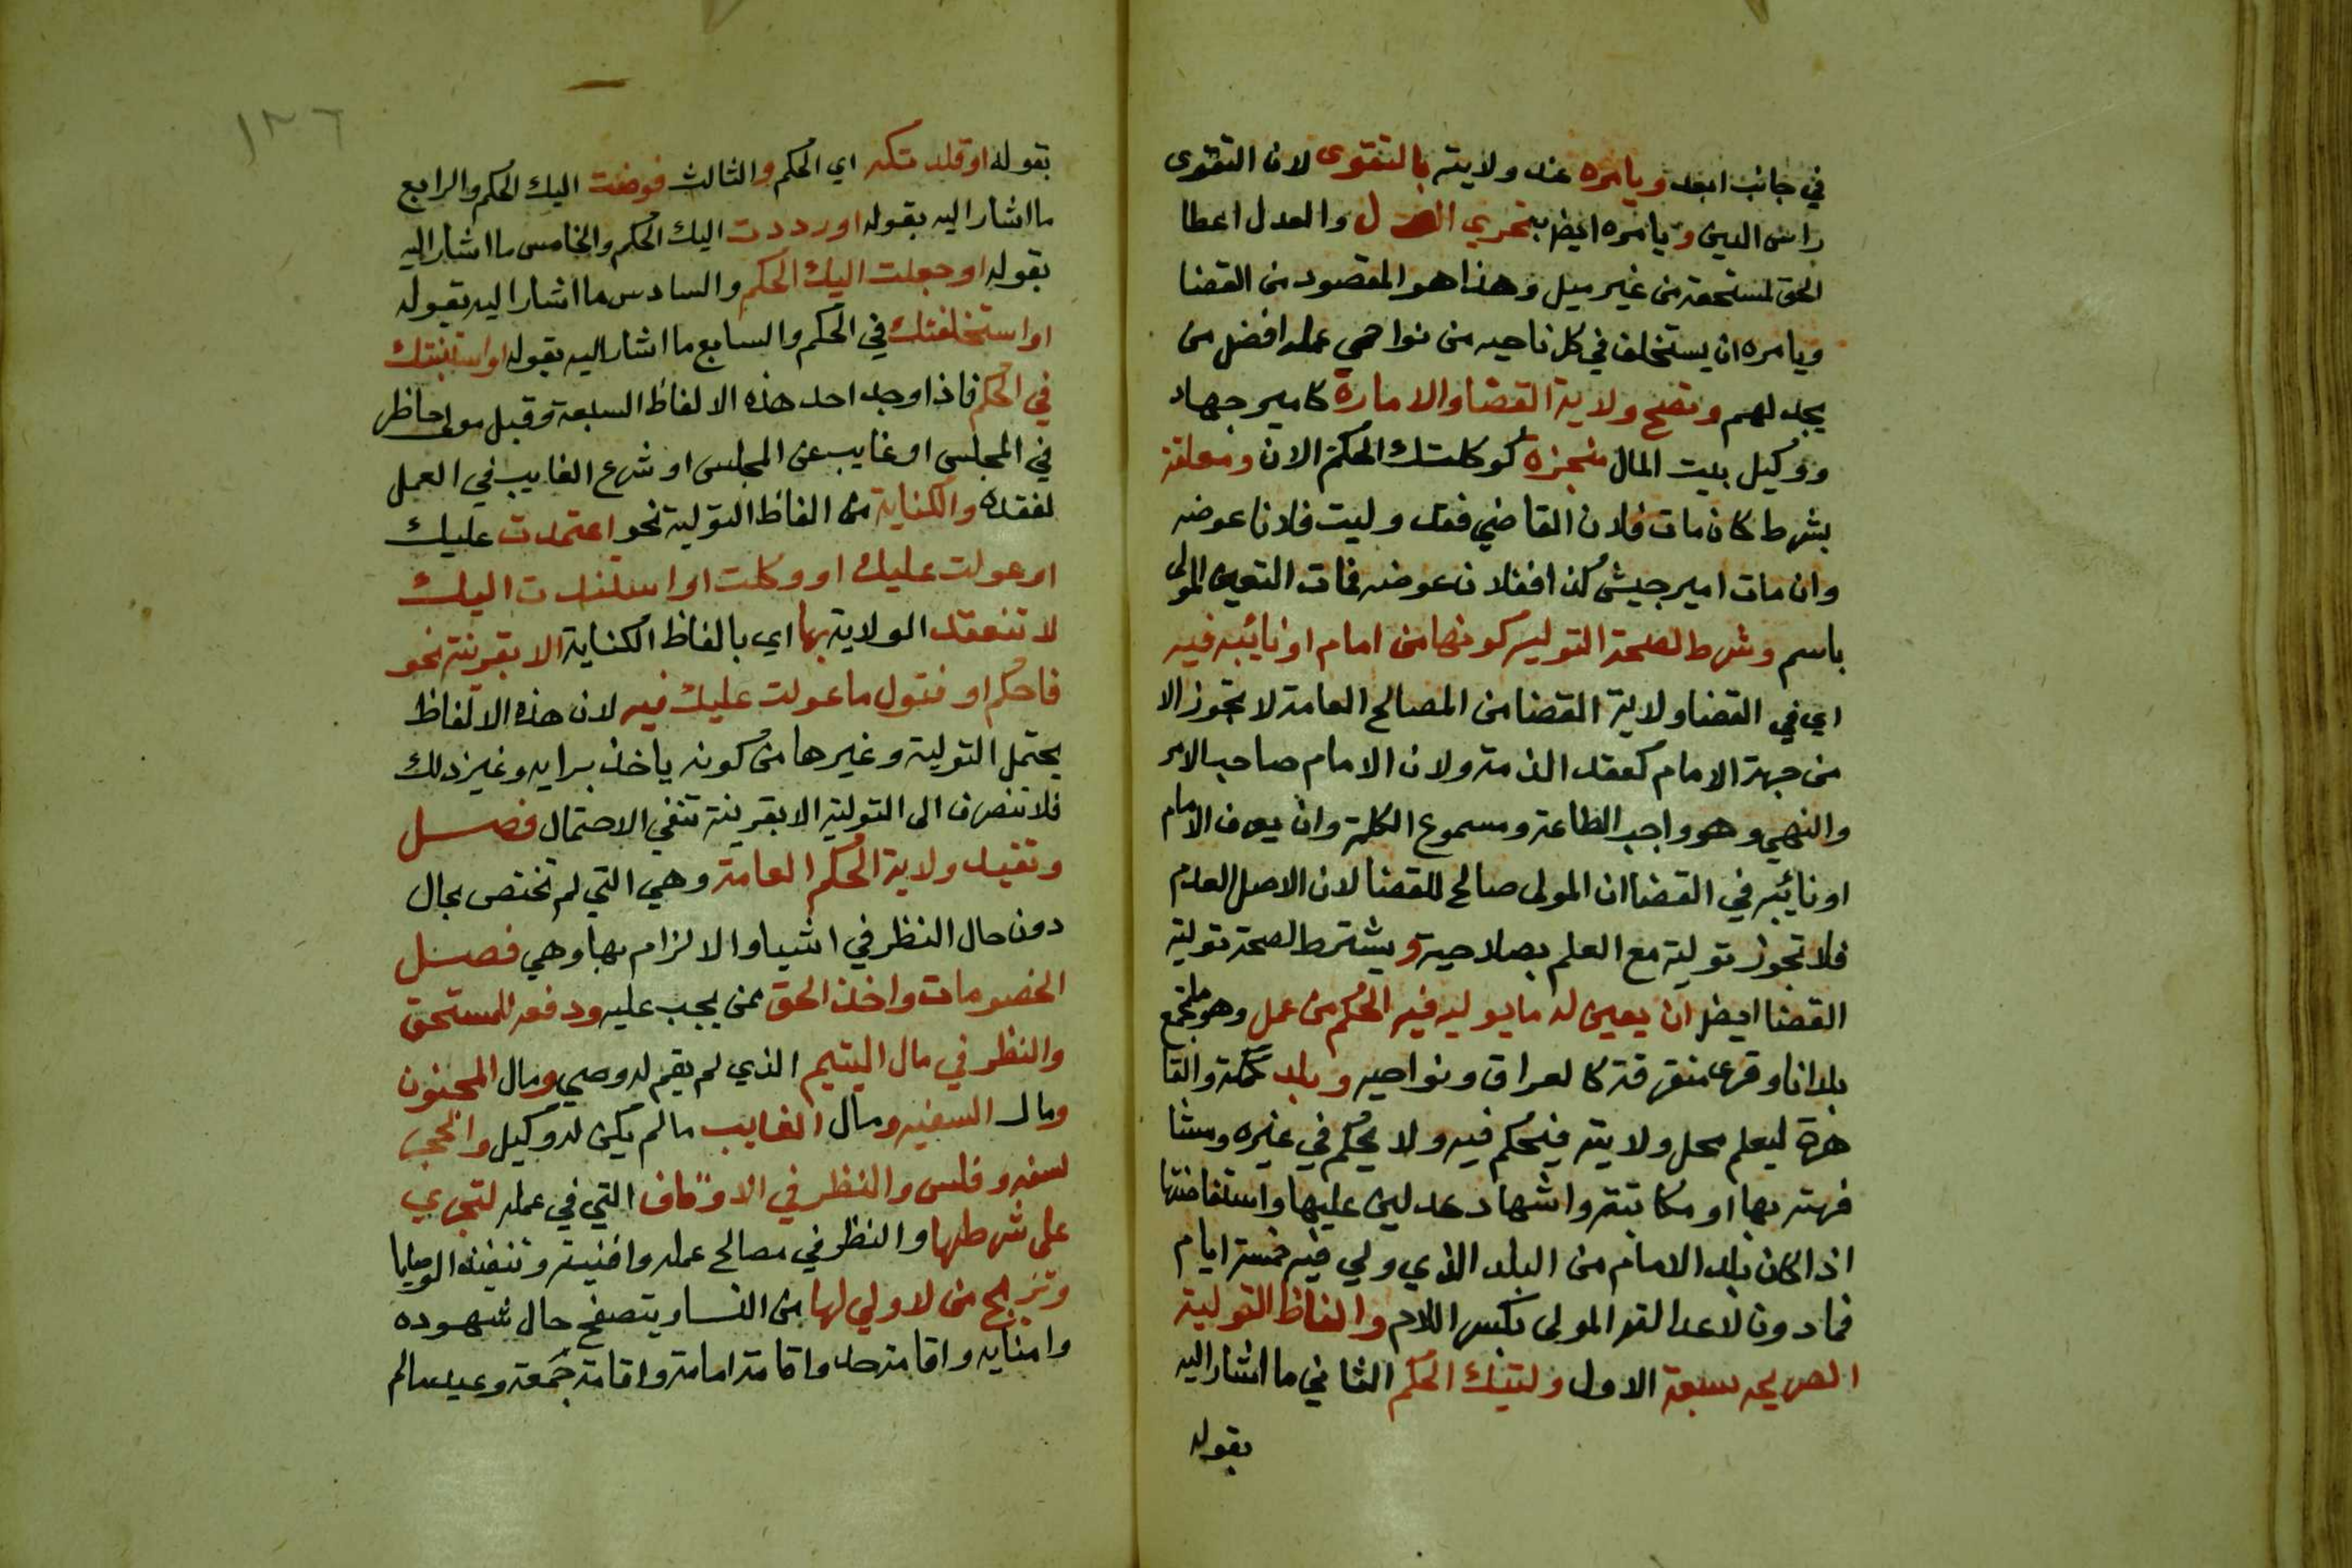 في جانب ابعد ويامره عند ولايته بالتقوى لان التقوى
راس الدين ويامره ايضا بتحري العدل والعدل اعطا
الحق لمستحقه من غير ميل وهذا هو المقصود من القضا
ويامره ان يستخلف في كل ناحيه من نواحي عمله افضل من
يجد لهم وتصح ولاية القضا والامارة كامير جهاد
ووكيل بيت المال منجزة كوكلتك الحكم الان ومعلقة
بشرط كان مات فلان القاضي فقد وليت فلانا عوضه
وان مات امير جيش كذا ففلان عوضه فمات التعين المولى
باسم وشرط لصحة التوليه كونها من امام او نائبه فيه
اي في القضا ولاية القضا من المصالح العامة لا تجوز الا
من جهة الامام كعقد الذمة ولان الامام صاحب الامر
والنهي وهو واجب الطاعة ومسموع الكلمة وان يعرف الامام
او نائبه في القضا ان المولى صالح للقضا لان الاصل العدم
فلا تجوز توليته مع العلم بصلاحيته ويشترط لصحة تولية
القضا ايضا ان يعين له ما يوليه فيه الحكم من عمل وهو ما يجمع
بلدانا وقرى متفرقة كالعراق ونواحيه وبلد كمكة والقا
هرة ليعلم محل ولايته فيحكم فيه ولا يحكم في غيره ومشا
فهته بها او مكاتبته واشهاد عدلين عليها واستفاضتها
اذا كان بلد الامام من البلد الذي ولي فيه خمسة ايام
فما دون لا عدالة المولى بكسر اللام والفاظ التولية
الصريحه سبعة الاول وليتك الحكم الثاني ما اشار اليه
بقوله
١٢٦
بقوله او قلدتكه اي الحكم والثالث فوضت اليك الحكم والرابع
ما اشار اليه بقوله او رددت اليك الحكم والخامس ما اشار اليه
بقوله او جعلت اليك الحكم والسادس ما اشار اليه بقوله
او استخلفتك في الحكم والسابع ما اشار اليه بقوله او استنبتك
في الحكم فاذا وجد احد هذه الالفاظ السبعة وقبل مولى حاظر
في المجلس او غايب عن المجلس او شرع الغايب في العمل
لفقده والكناية من الفاظ التولية نحو اعتمدت عليك
او عولت عليك او وكلت او استندت اليك
لا تنعقد الولاية بها اي بالفاظ الكناية الا بقرينة نحو
فاحكم او فتول ما عولت عليك فيه لان هذه الالفاظ
يحتمل التولية وغيرها من كونه ياخذ برايه وغير ذلك
فلا تنصرف الى التولية الا بقرينة تنفي الاحتمال فصل
وتفيد ولاية الحكم العامة وهي التي لم تختص بحال
دون حال النظر في اشيا والالزام بها وهي فصل
الخصومات واخذ الحق ممن يجب عليه ودفعه للمستحق
والنظر في مال اليتيم الذي لم يقم له وصي ومال المجنون
ومال السفيه ومال الغايب ما لم يكن له وكيل والحجر
لسفه وفلس والنظر في الاوقاف التي في عمله لتجري
على شرطها والنظر في مصالح عمله وافنيته وتنفيذ الوصايا
وتزويج من لا ولي لها من النسا ويتصفح حال شهوده
وامنايه واقامة حد واقامة امامة واقامة جمعة وعيد ما لم